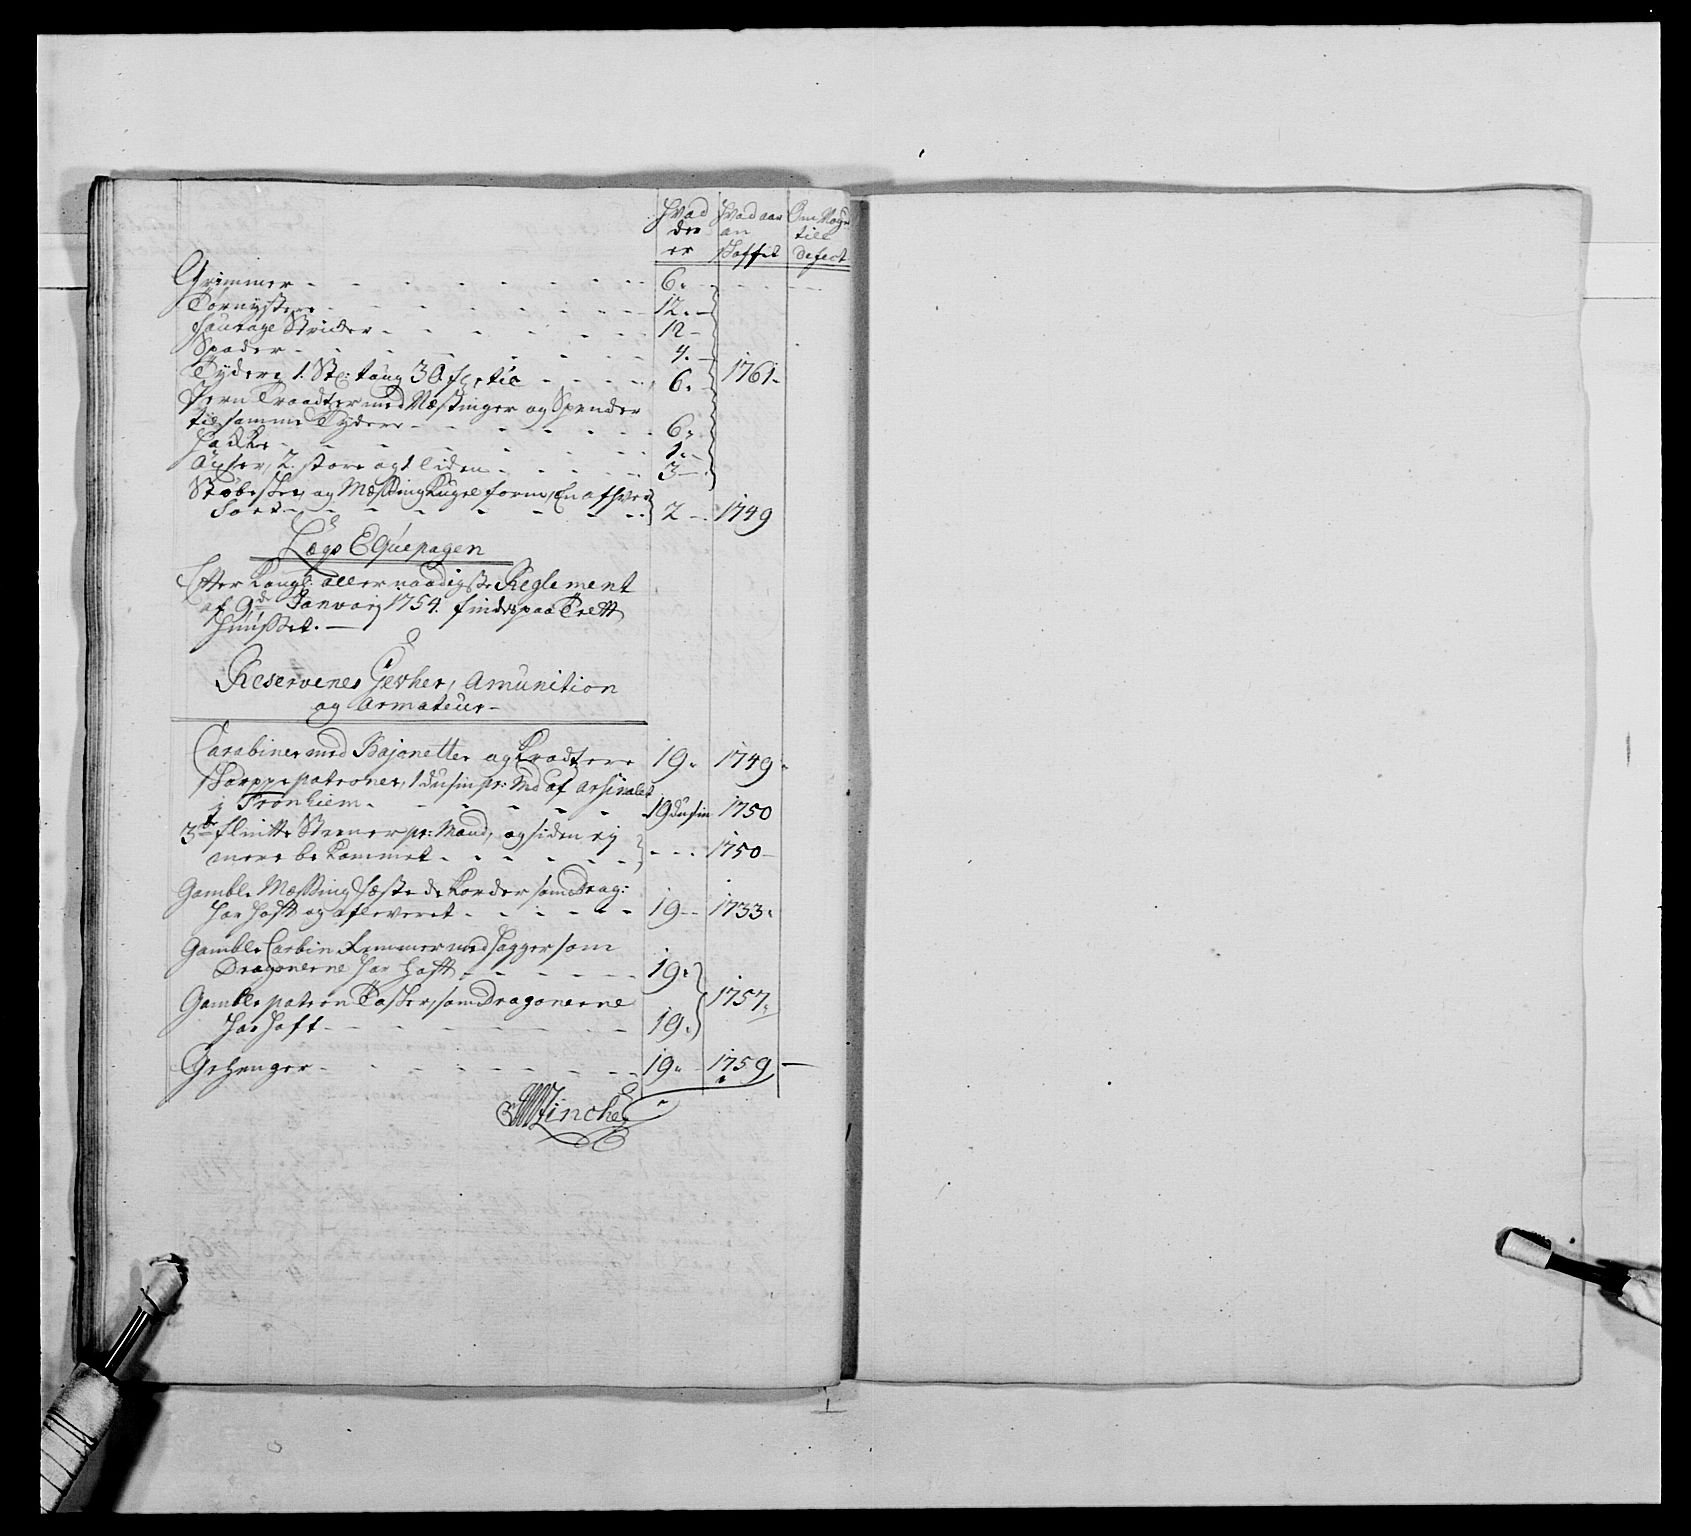 Hvad der er | Hvad aar an skaffet | Om Noget till defect
Grimmer - 6.
Tørnystere - 12.
fourage Strikker - 12
Spader - 4.
Tydere 1. St: taug 30 til - 6. 1761.
Jern Traadter med Mæssinger og Spender
til samme Tydere - 6.
Hakke - 1.
Öxser, 2. store og 1 liden - 3
Støbeskee og Messing Kugel form, En af hver
Sort - 2 1749
Lægs Equepagen
Efter Kongl: aller naadigste Reglement
af 9de Januarij 1754. findes paa Tellt
Huusset.
Reservenes Gevher, Amunition
og Armateur
Carabiner med Bajonetter og Kradtere 19. 1749
Skarppe patroner, 1 dusin pr: Md af arsinalet
i Tronhiem - 19 dusin 1750
3de flintte Steener pr: Mand, og siden ej
mere be kommet - 1750
Gamble Messing fæstede Korder som Drag:
har haft og afleveret - 19 1733.
Gamble Carbin Remmer med hager som
Dragonerne har haft - 19.
Gamble patron Tasker, som Dragonerne 1757.
har haft - 19.
Gehenger - 19. 1759